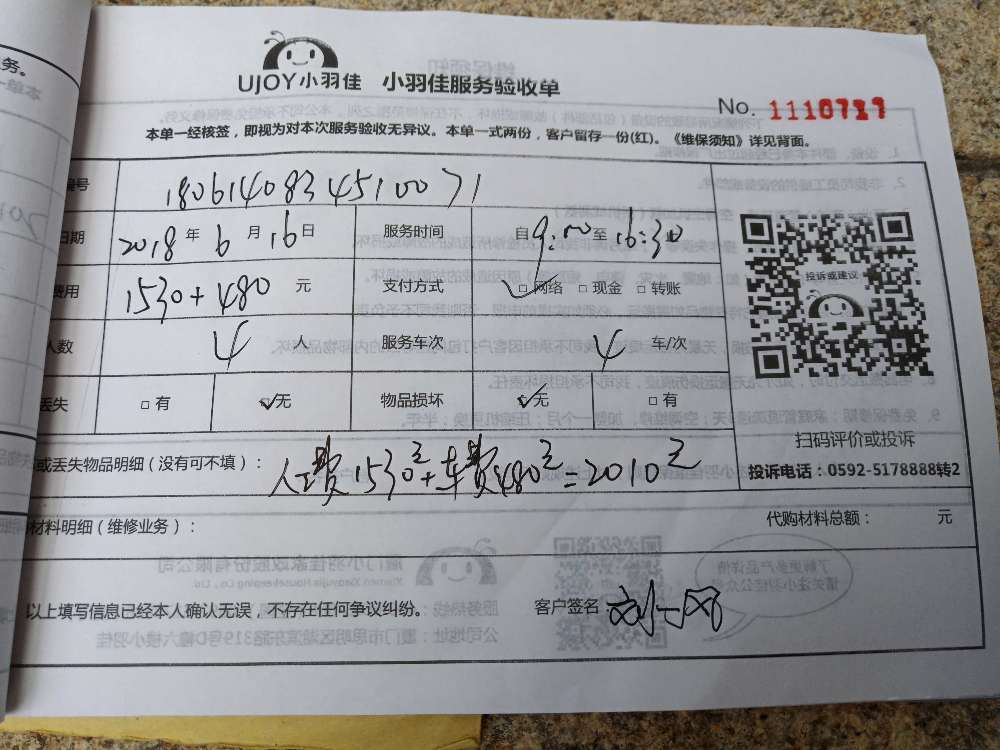 务。
UJOY小羽佳 小羽佳服务验收单
No. 1110727
本单一经核签，即视为对本次服务验收无异议。本单一式两份，客户留存一份(红)。《维保须知》详见背面。
编号 180614083451000 71
日期 2018年6月16日 服务时间 自9:00至16:30
费用 1530+480 元 支付方式 □网络 □现金 □转账
人数 4 人 服务车次 4 车/次
丢失 □有 ☑无 物品损坏 ☑无 □有
投诉或建议
扫码评价或投诉
投诉电话：0592-5178888转2
或丢失物品明细（没有可不填）： 人工费1530元+车费480元=2010元
材料明细（维修业务）： 代购材料总额： 元
以上填写信息已经本人确认无误，不存在任何争议纠纷。 客户签名 刘一风